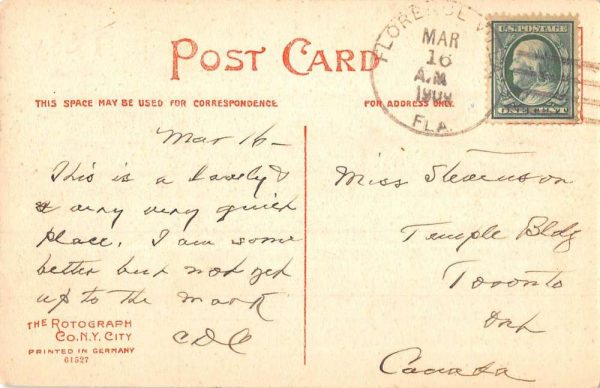 POST CARD
FLORENCE
MAR
16
A.M
1909
FLA.
U.S. POSTAGE
ONE CENT
THIS SPACE MAY BE USED FOR CORRESPONDENCE
FOR ADDRESS ONLY.
Mar 16 –
This is a lovely &
a very very quiet
place. I am some
better but not yet
up to the mark
CDC
Miss Stevenson
Temple Bldg
Toronto
Ont
Canada
THE ROTOGRAPH
CO. N.Y. CITY
PRINTED IN GERMANY
61527